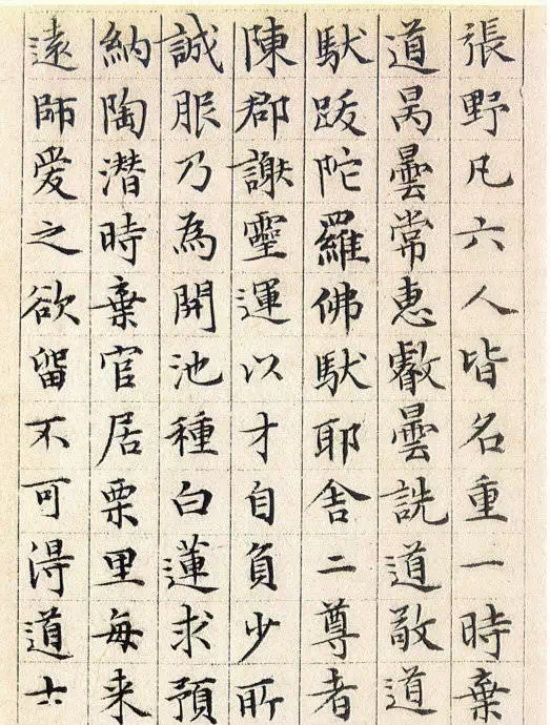 張野凡六人皆名重一時棄
道昺曇常惠叡曇詵道敬道
馱跋陀羅佛馱耶舎二尊者
陳郡謝靈運以才自負少所
誠服乃為開池種白蓮求預
納陶潜時棄官居栗里每来
遠師愛之欲留不可淂道士